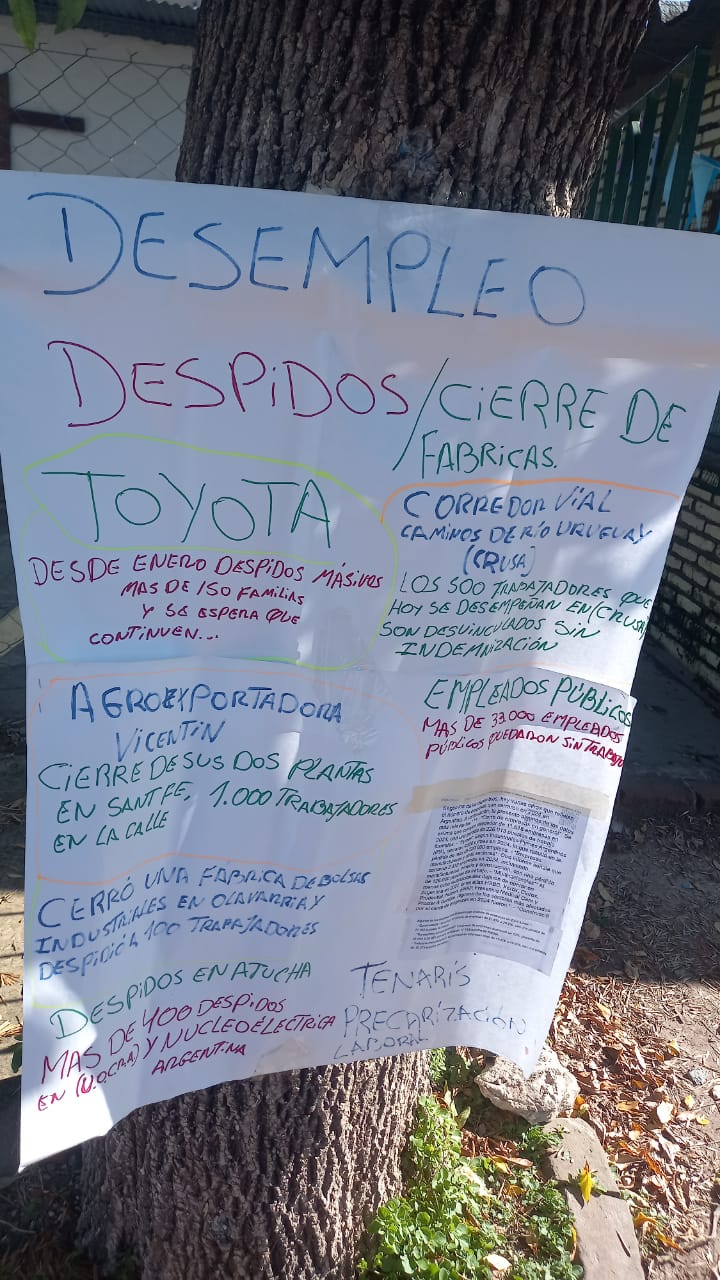 DESEMPLEO
DESPIDOS/CIERRE DE
FABRICAS.
TOYOTA
DESDE ENERO DESPIDOS MÁSIVOS
MAS DE 150 FAMILIAS
Y SE ESPERA QUE
CONTINUEN...
CORREDOR VIAL
CAMINOS DE RÍO URUGUAY
(CRUSA)
LOS 500 TRABAJADORES QUE
HOY SE DESEMPEÑAN EN (CRUSA)
SON DESVINCULADOS SIN
INDEMNIZACIÓN
AGROEXPORTADORA
VICENTIN
CIERRE DE SUS DOS PLANTAS
EN SANTFE, 1.000 TRABAJADORES
EN LA CALLE
EMPLEADOS PÚBLICOS
MAS DE 33.000 EMPLEADOS
PÚBLICOS QUEDARON SIN TRABAJO
CERRÓ UNA FÁBRICA DE BOLSAS
INDUSTRIALES EN OLAVARRIA Y
DESPIDIÓ A 100 TRABAJADORES
DESPIDOS EN ATUCHA
MAS DE 400 DESPIDOS
EN (U.O.C.R.A) Y NUCLEOELÉCTRICA
ARGENTINA
TENARIS
PRECARIZACIÓN
LABORAL